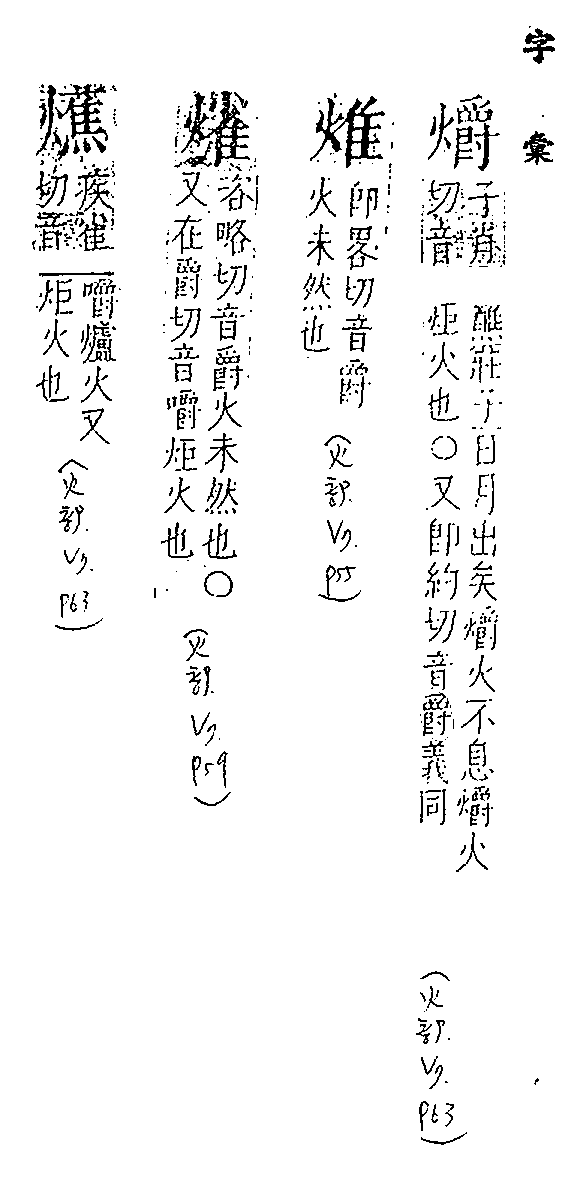 字彙
爝
子肖
切音
醮莊子日月出矣爝火不息爝火
炬火也〇又即約切音爵義同
(火部.V7.P63)
㷅
即畧切音爵
火未然也
(火部.V7.P55)
洛略切音爵火未然也〇
又在爵切音嚼炬火也
(火部.V7.P59)
疾雀
切音
嚼爐火又
炬火也
(火部.V7.P63)